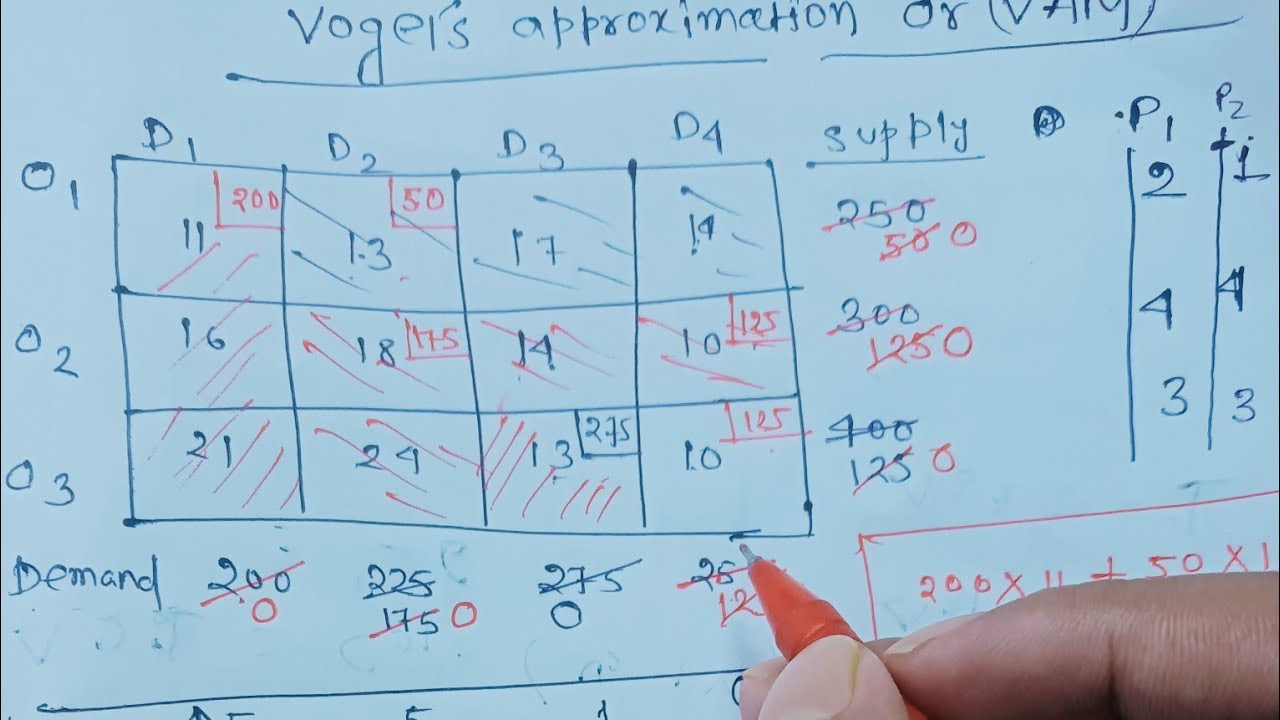 Vogel's approximation or (VAM)
D1 D2 D3 D4 supply P1 P2
O1 11 200 13 50 17 14 250 50 0 2 1
O2 16 18 175 14 10 125 300 125 0 4 4
O3 21 24 13 275 10 125 400 125 0 3 3
Demand 200 0 225 175 0 275 0
200 X 11 + 50 X 1
5 1